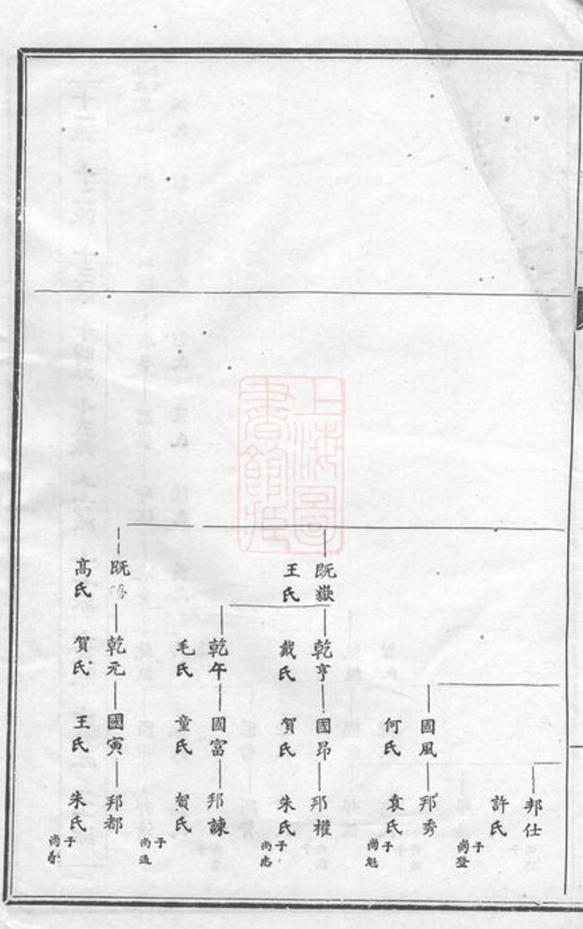 邦仕
許氏
子尚登
國風
何氏
邦秀
袁氏
子尚魁
既嶽
王氏
乾亨
戴氏
國昂
賀氏
邦權
朱氏
子尚志
乾午
毛氏
國富
童氏
邦諫
賀氏
子尚通
既
高氏
乾元
賀氏
國寅
王氏
邦都
朱氏
子尚
上海圖書館藏